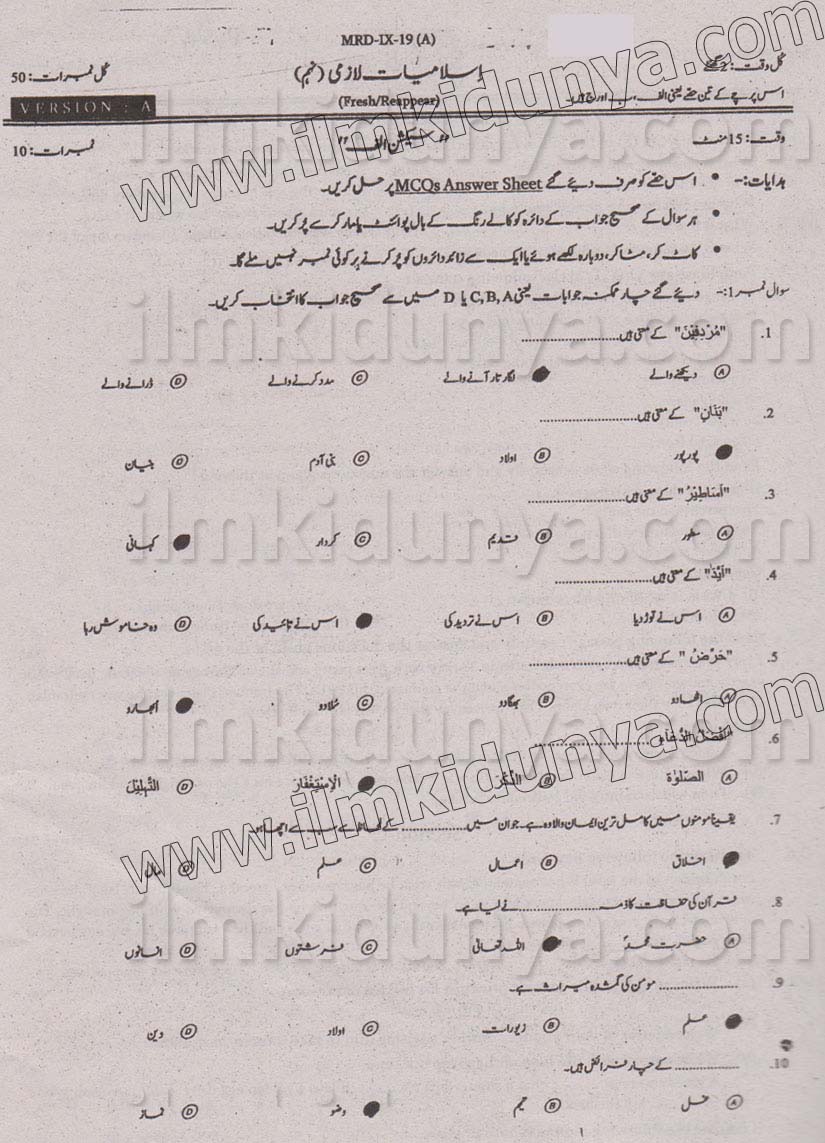 MRD-IX-19 (A)
کل وقت: 2 گھنٹے
اسلامیات لازمی (نہم)
کل نمبرات: 50
اس پرچے کے تین حصے یعنی الف، ب اور ج ہیں۔
(Fresh/Reappear)
VERSION : A
وقت: 15 منٹ
"سیکشن الف"
نمبرات: 10
ہدایات:- • اس حصے کو صرف دیئے گئے MCQs Answer Sheet پر حل کریں۔
• ہر سوال کے صحیح جواب کے دائرہ کو کالے رنگ کے بال پوائنٹ یا مارکر سے پُر کریں۔
• کاٹ کر، مٹا کر، دوبارہ لکھے ہوئے یا ایک سے زائد دائروں کو پُر کرنے پر کوئی نمبر نہیں ملے گا۔
سوال نمبر 1:- دیئے گئے چار ممکنہ جوابات یعنی C, B, A یا D میں سے صحیح جواب کا انتخاب کریں۔
1. "مُرْدِفِيْنَ" کے معنی ہیں....................
A دیکھنے والے لگاتار آنے والے C مدد کرنے والے D ڈرانے والے
2. "بَنَانِ" کے معنی ہیں....................
پور پور B اولاد C بنی آدم D بنیان
3. "اَسَاطِيْرُ" کے معنی ہیں....................
A سطور B قدیم C کردار کہانی
4. "اَيَّدَ" کے معنی ہیں....................
A اس نے توڑ دیا B اس نے تردید کی اس نے تائید کی D وہ خاموش رہا
5. "حَرِّضُ" کے معنی ہیں....................
A اٹھا دو B بھگا دو C سُلا دو اُبھارو
6. "اَفْضَلُ الدُّعَاءِ ....................
A الصلوٰۃ B الذِّكْرُ الْاِسْتِغْفَارَ D التَّهْلِيْلَ
7. یقیناً مومنوں میں کامل ترین ایمان والا وہ ہے۔ جو ان میں.................... کے لحاظ سے سب سے اچھا ہو۔
اخلاق B اعمال C علم D مال
8. قرآن کی حفاظت کا ذمہ .................... نے لیا ہے۔
A حضرت محمدؐ اللہ تعالیٰ C فرشتوں D انسانوں
9. .................... مومن کی گمشدہ میراث ہے۔
علم B زیورات C اولاد D دین
10. .................... کے چار فرائض ہیں۔
A غسل B تیمم وضو D نماز
۱
www.ilmkidunya.com
ilmkidunya.com
ilmkidunya.com
ilmkidunya.com
www.ilmkidunya.com
ilmkidunya.com
ilmkidunya.com